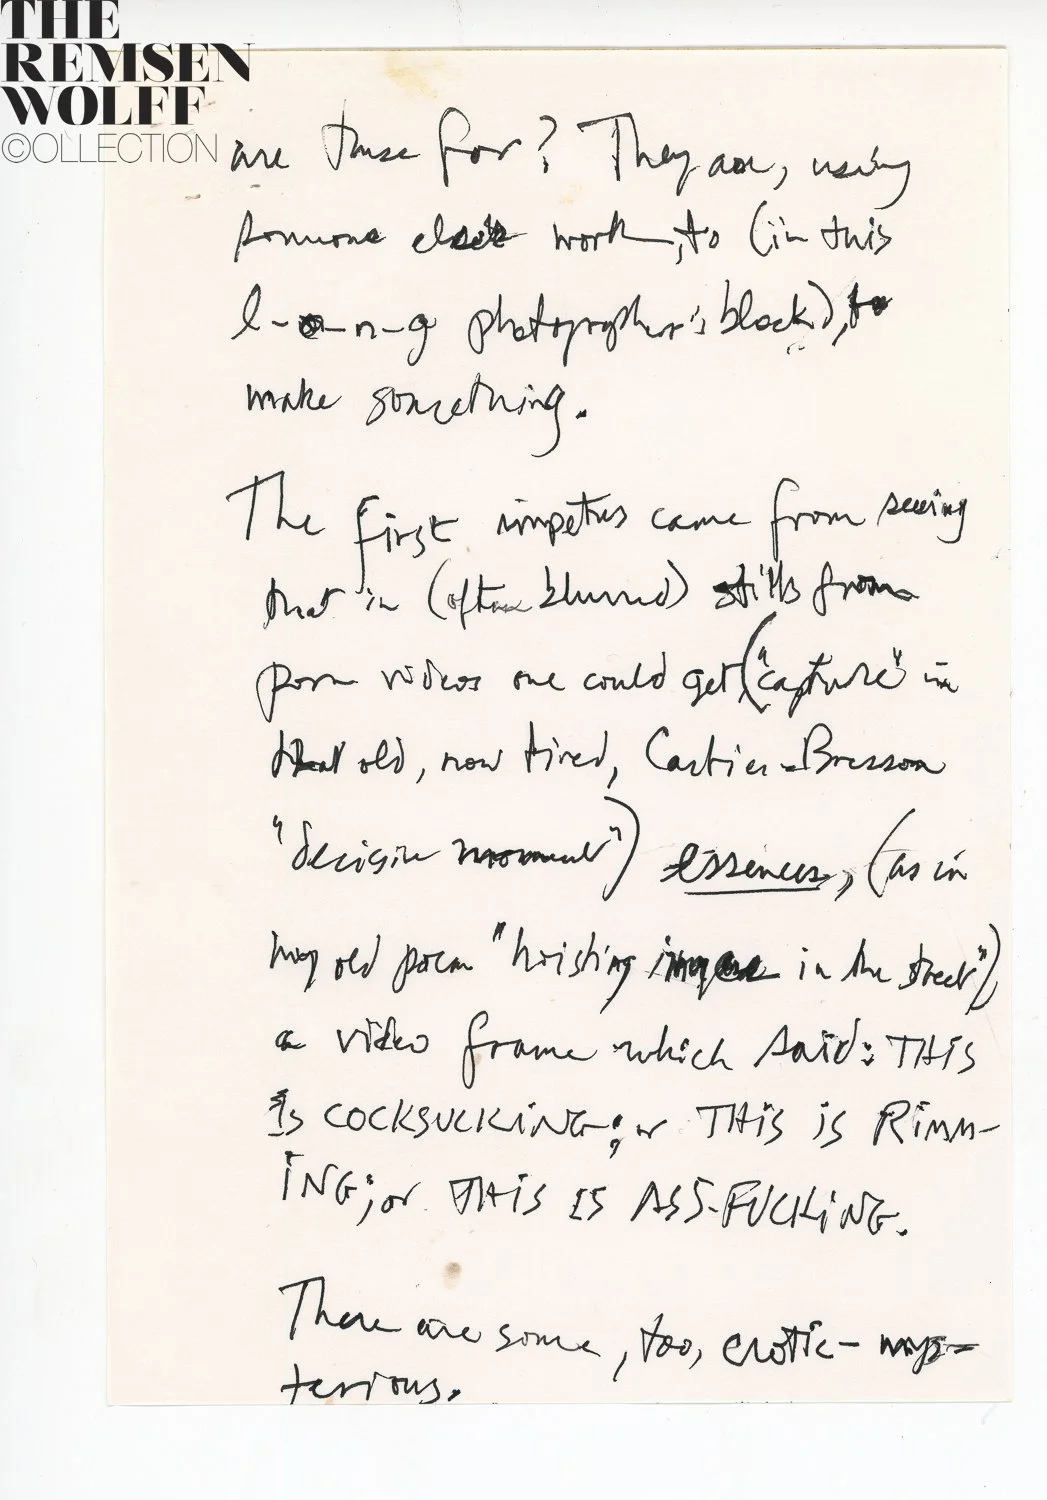 THE
REMSEN
WOLFF
©OLLECTION
are these for? They are, using
someone else's work, to (in this
l-o-n-g photographer's block), to
make something.
The first impetus came from seeing
that in (often blurred) stills from
porn videos one could get ("capture" in
that old, now tired, Cartier-Bresson
"decisive moment") essences, (as in
my old poem "hoisting in the street")
a video frame which said: THIS
IS COCKSUCKING; or THIS IS RIMM-
ING; or THIS IS ASS-FUCKING.
There are some, too, erotic-mys-
terious.